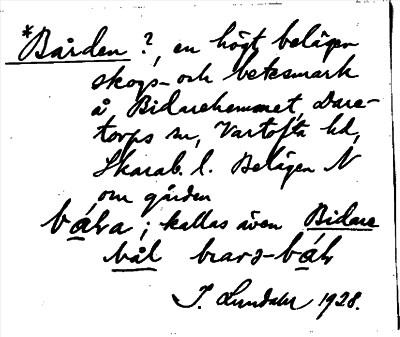 *Bården ?, en högt belägen
skogs- och betesmark
å Bidarehemmet, Dare-
torps sn, Vartofta hd,
Skarab. l. Belägen N
om gården
kallas även Bidare
bål
J. Lundahl 1928.